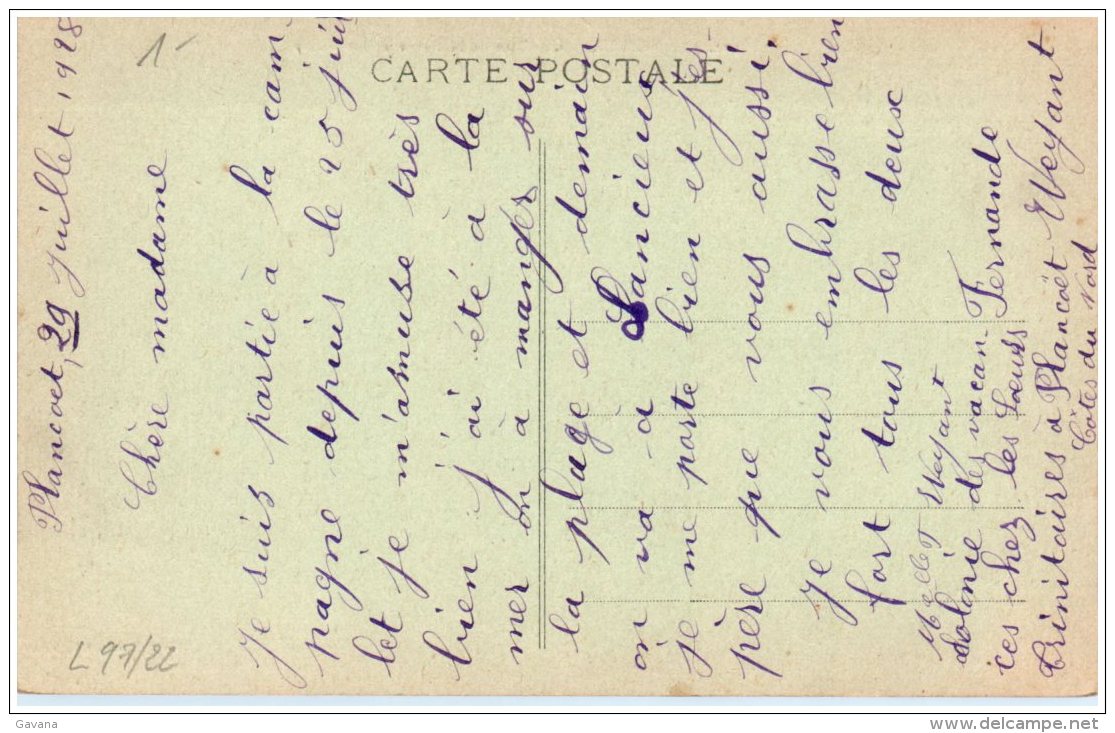 Plancoet, 29 Juillet, 1928
Chère madame
Je suis partie à la cam
pagne depuis le 25 juil
let je m'amuse très
bien j'ai été à la
mer on à manger sur
la plage et demain
on va à Lancieux
je me porte bien et j'es-
père que vous aussi
Je vous embrasse bien
fort tous les deux
Fernande
Melle F Weyant
colonie des vacan-
ces chez les Sœurs
Trinitaires à Plancoët Weyant
Côtes du Nord
CARTE POSTALE
1-
L 97/22
Gavana
delcampe.net